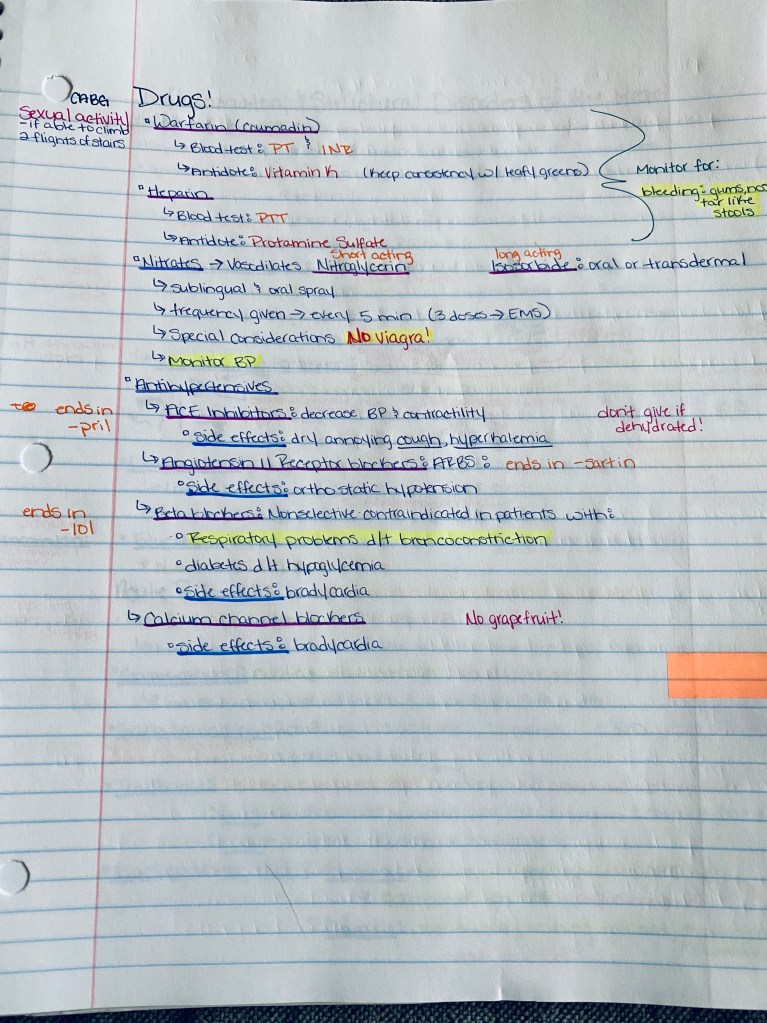 CABG
Sexual activity
-if able to climb
2 flights of stairs
Drugs!
° Warfarin (coumadin)
↳ Blood test: PT & INR
↳ Antidote: Vitamin K (keep consistency w/ leafy greens)
Monitor for:
bleeding: gums,
tar like
stools
° Heparin
↳ Blood test: PTT
↳ Antidote: Protamine Sulfate
short acting
long acting
° Nitrates → Vasodilates Nitroglycerin Isosorbide: oral or transdermal
↳ sublingual & oral spray
↳ frequency given → every 5 min (3 doses → EMS)
↳ Special considerations No viagra!
↳ Monitor BP
° Antihypertensives
ends in
-pril
↳ ACE Inhibitors: decrease BP & contractility
don't give if
dehydrated!
° Side effects: dry annoying cough, hyperkalemia
↳ Angiotensin II Receptor blockers: ARBS: ends in -sartin
° Side effects: orthostatic hypotension
ends in
-lol
↳ Beta blockers: Nonselective contraindicated in patients with:
° Respiratory problems d/t broncoconstriction
° diabetes d/t hypoglycemia
° Side effects: bradycardia
↳ Calcium channel blockers No grapefruit!
° Side effects: bradycardia